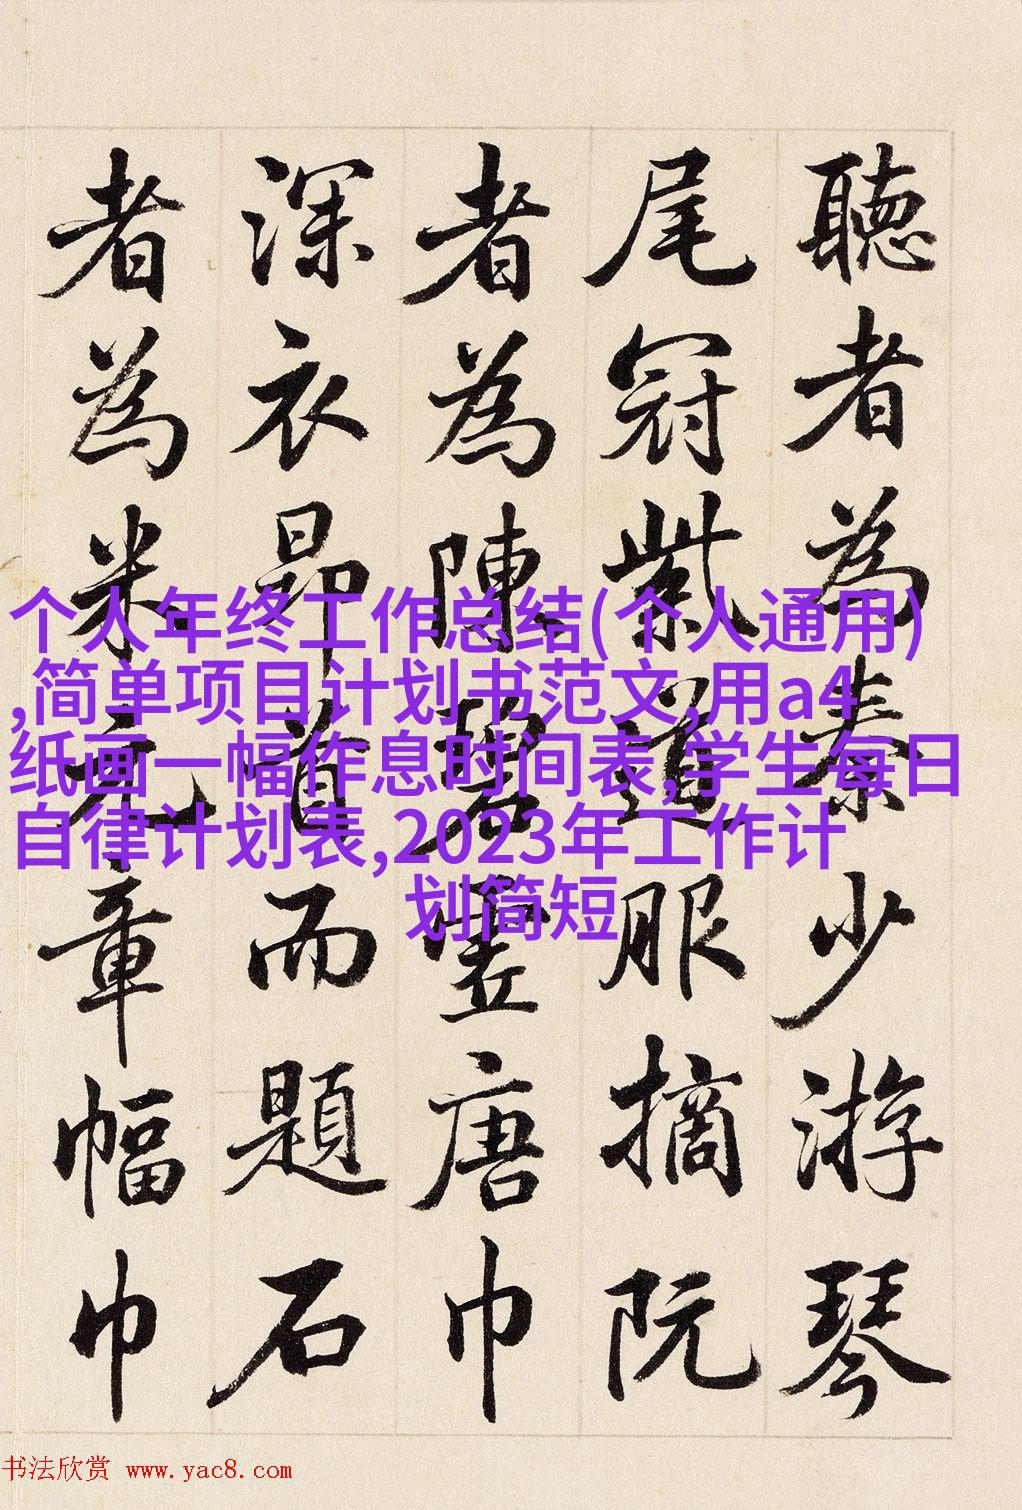 聽者為秦少游琴
尾冠紫道服摘阮
者為陳碧虛唐巾
深衣昂首而題石
者為米元章幅巾
个人年终工作总结(个人通用)
,简单项目计划书范文,用a4
纸画一幅作息时间表,学生每日
自律计划表,2023年工作计
划简短
书法欣赏 www.yac8.com